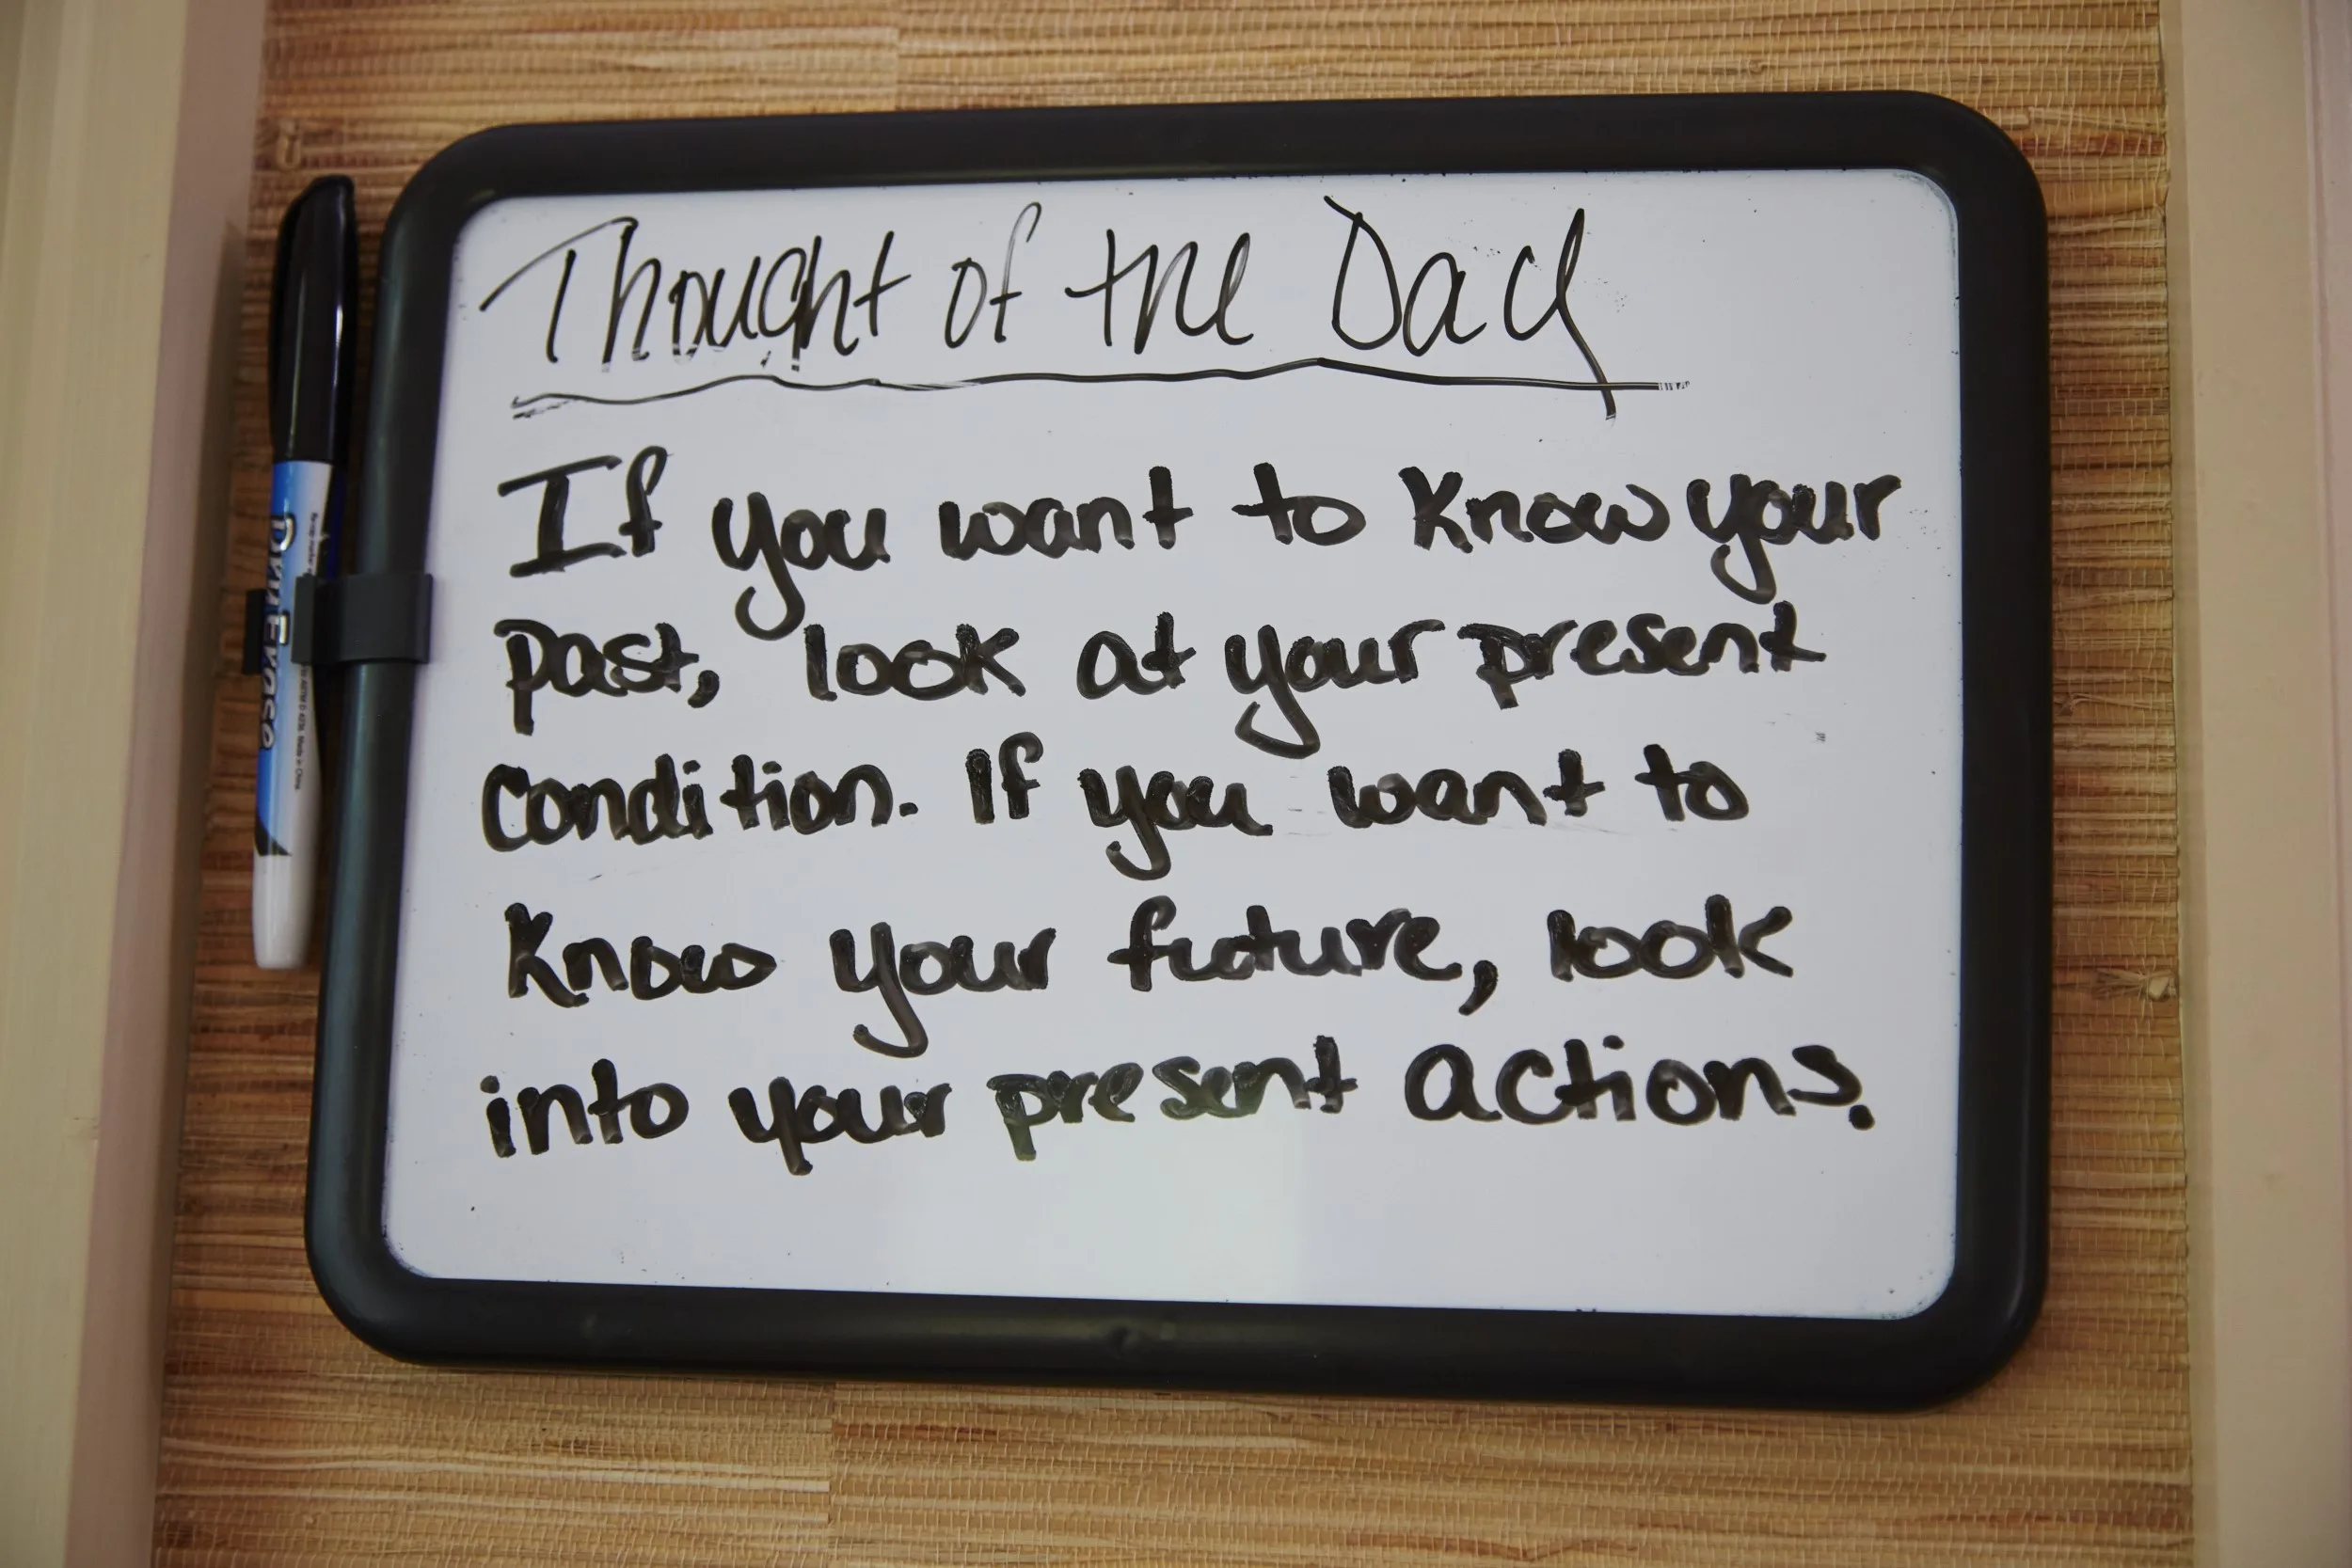 Thought of the Day
If you want to know your
past, look at your present
condition. If you want to
know your future, look
into your present actions.
Dry Erase